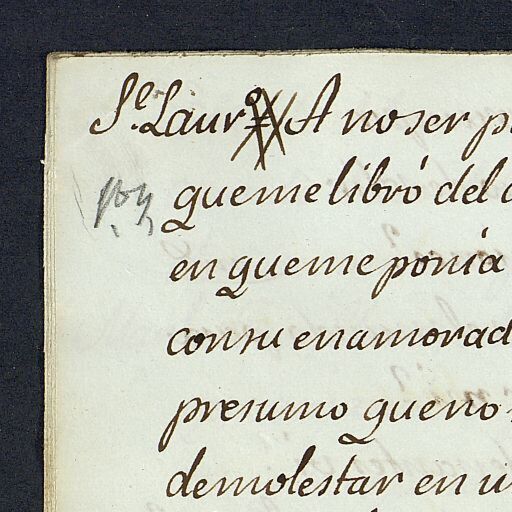 Sᵉ. Laurº A no ser p
que me libró del
en que me ponia
con su enamorad
presumo que no
demolestar en u